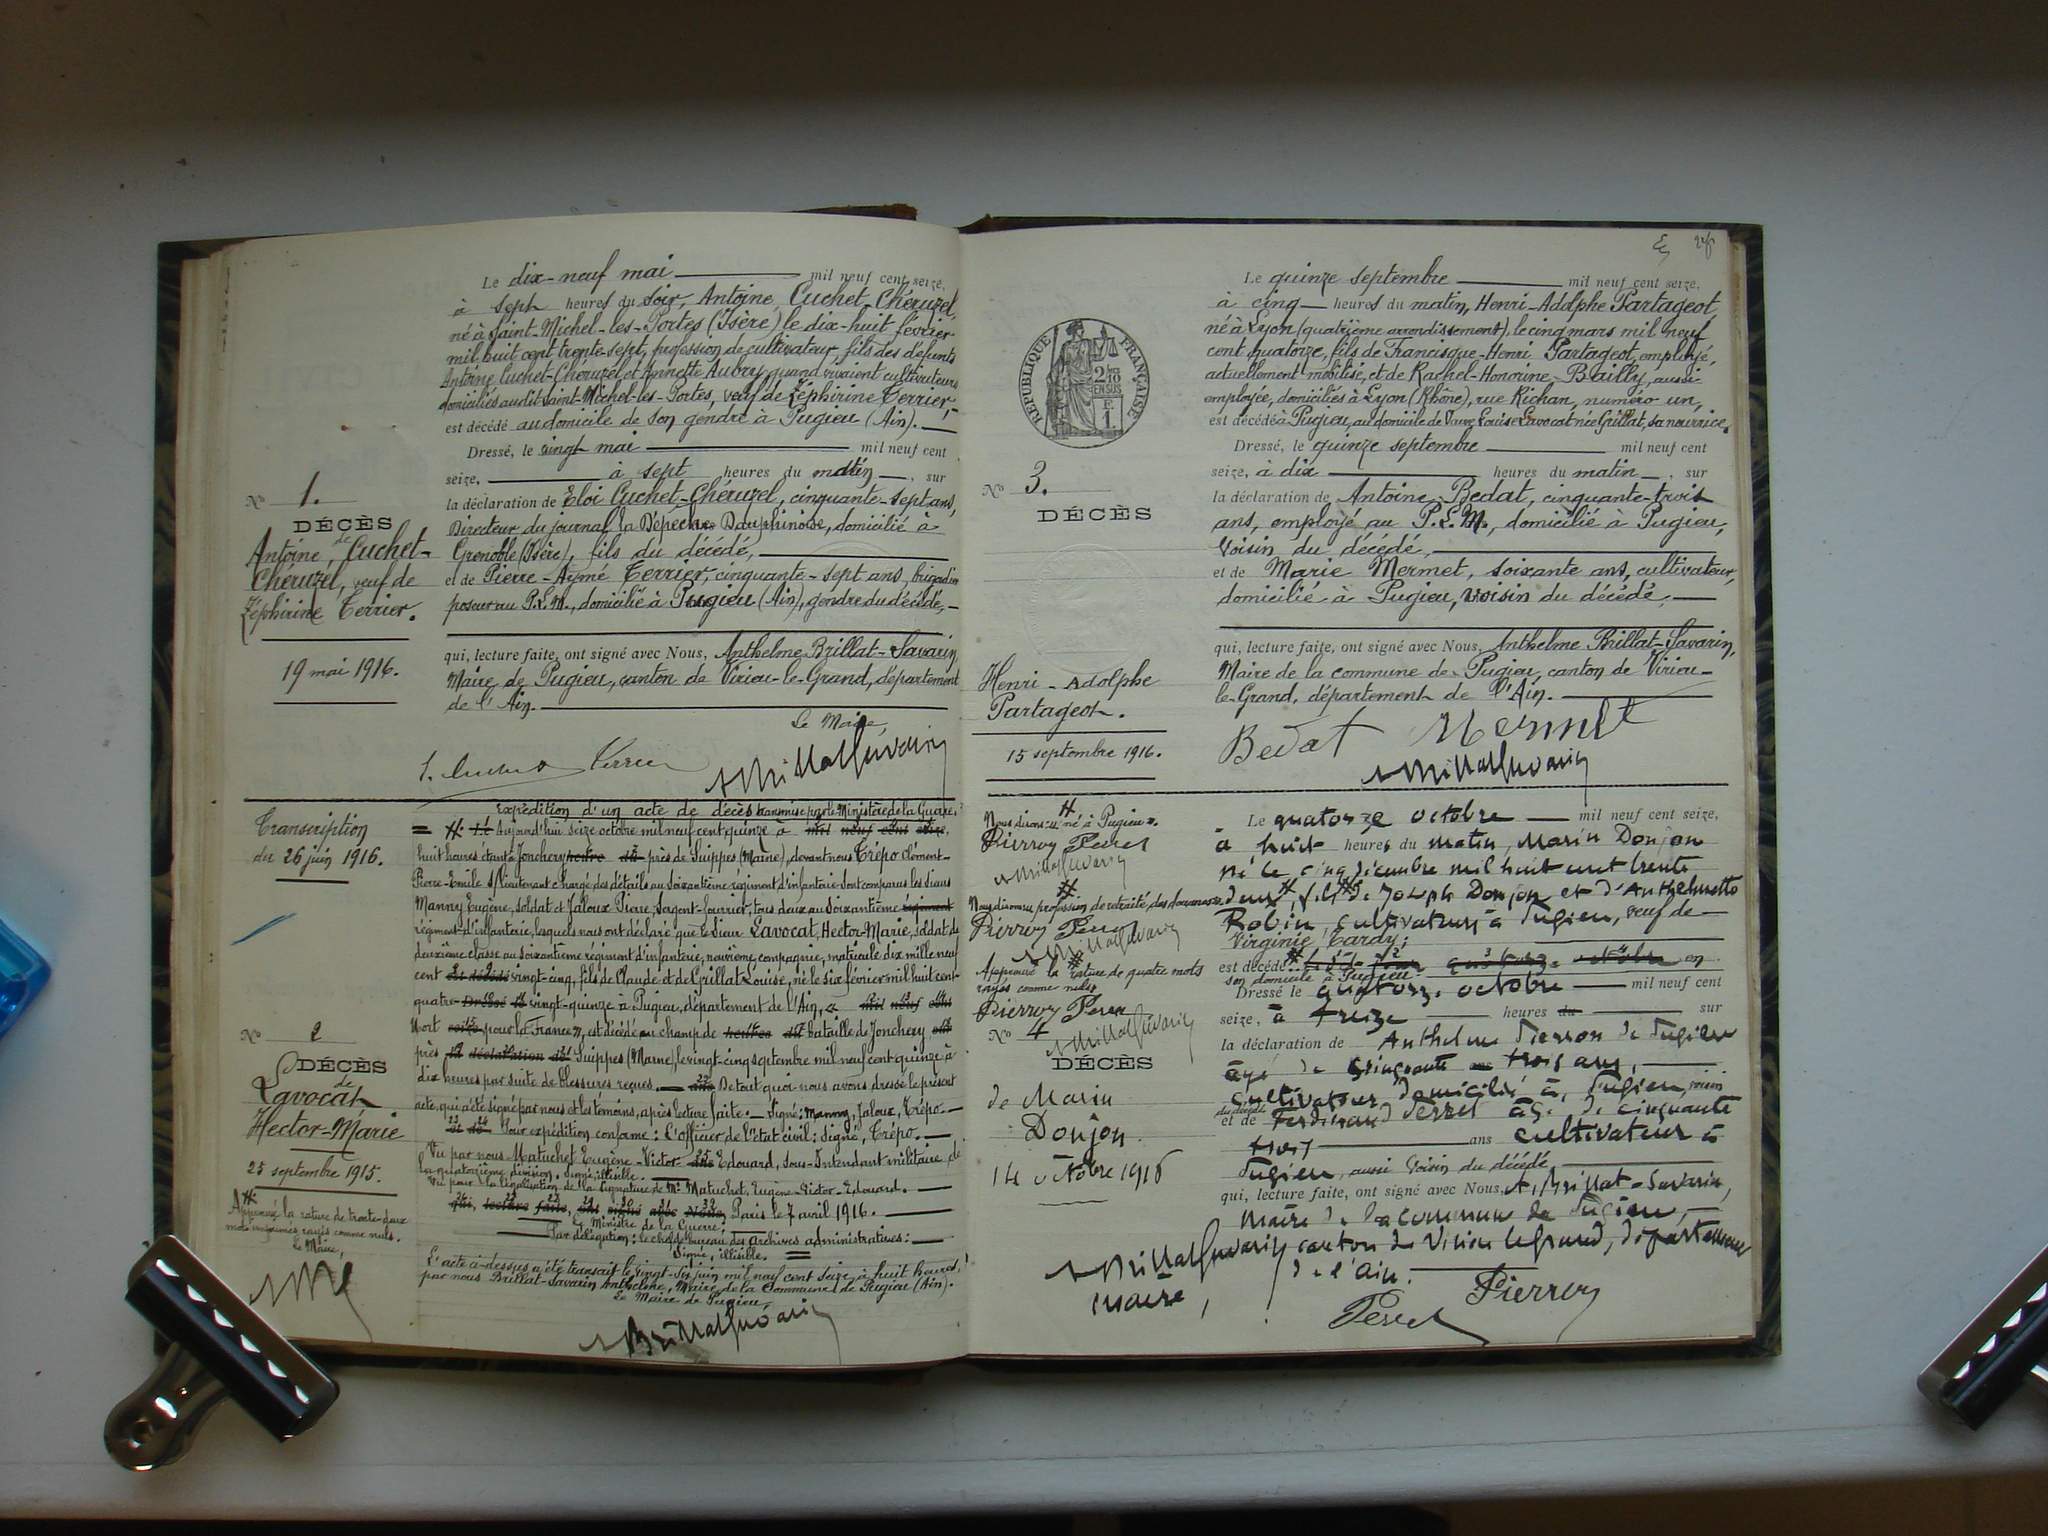 Le dix-neuf mai mil neuf cent seize,
à sept heures du soir, Antoine Cuchet-Chéruzel,
né à Saint-Michel-les-Portes (Isère) le dix-huit février
mil huit cent trente-sept, profession de cultivateur, fils des défunts
Antoine Cuchet-Chéruzel et Annette Aubry quand vivaient cultivateurs
domiciliés audit Saint-Michel-les-Portes, veuf de Zéphirine Terrier,
est décédé au domicile de son gendre à Pugieu (Ain).
Dressé, le vingt mai mil neuf cent
seize, à sept heures du matin, sur
la déclaration de Eloi Cuchet-Chéruzel, cinquante-sept ans,
Directeur du journal la Dépêche Dauphinoise, domicilié à
Grenoble (Isère), fils du décédé,
et de Pierre-Aymé Terrier, cinquante-sept ans, brigadier
poseur au P.L.M., domicilié à Pugieu (Ain), gendre du décédé,
qui, lecture faite, ont signé avec Nous, Anthelme Brillat-Savarin,
Maire de Pugieu, canton de Virieu-le-Grand, département
de l'Ain.
Le Maire,
N° 1.
DÉCÈS
de
Antoine Cuchet-
Chéruzel, veuf de
Zéphirine Terrier.
19 mai 1916.
Transcription
du 26 juin 1916.
N° 2
DÉCÈS
de
Lavocat
Hector-Marie
25 septembre 1915.
Approuvé la rature de trente-deux
mots imprimés rayés comme nuls.
Le Maire,
Expédition d'un acte de décès transmise par le Ministère de la Guerre:
Aujourd'hui seize octobre mil neuf cent quinze à
huit heures étant à Jonchery près de Suippes (Marne), devant nous Trépo Clément-
Pierre-Emile s/lieutenant chargé des détails au soixantième régiment d'infanterie sont comparus les sieurs
Manny Eugène, soldat et Jaloux Pierre, sergent-fourrier, tous deux au soixantième régiment
régiment d'infanterie, lesquels nous ont déclaré que le sieur Lavocat, Hector-Marie, soldat de
deuxième classe au soixantième régiment d'infanterie, neuvième compagnie, matricule dix mille neuf
cent est décédé vingt-cinq, fils de Claude et de Grillat Louise, né le six février mil huit cent
quatre- Dressé le vingt-quinze à Pugieu, département de l'Ain, mil neuf cent
Mort seize pour la France, est décédé au champ de heures du bataille de Jonchery, sur
près la déclaration de Suippes (Marne), le vingt-cinq septembre mil neuf cent quinze à
dix heures par suite de blessures reçues. De tout quoi nous avons dressé le présent
acte, qui a été signé par nous et les témoins, après lecture faite. Signé: Manny, Jaloux, Trépo.
et de Pour expédition conforme: L'officier de l'état civil: signé, Trépo.
Vu par nous Matuchet Eugène-Victor- ans Edouard, Sous-Intendant militaire de
la quatorzième division. Signé, illisible.
Vu pour la légalisation de la signature de Mr Matuchet, Eugène-Victor-Edouard.
qui, lecture faite, ont signé avec Nous, Paris le 7 avril 1916.
Le Ministre de la Guerre:
Par délégation: le chef de bureau des archives administratives:
Signé, illisible.
L'acte ci-dessus a été transcrit le vingt-six juin mil neuf cent seize, à huit heures,
par nous Brillat-Savarin Anthelme, Maire de la Commune de Pugieu (Ain).
Le Maire de Pugieu,
ABrillatSavarin
RÉPUBLIQUE FRANÇAISE
2/10
EN SUS
F.
1.
N° 3.
DÉCÈS
Henri-Adolphe
Partageot.
15 septembre 1916.
Le quinze septembre mil neuf cent seize,
à cinq heures du matin, Henri-Adolphe Partageot
né à Lyon (quatrième arrondissement), le cinq mars mil neuf
cent quatorze, fils de Francisque-Henri Partageot, employé,
actuellement mobilisé, et de Rachel-Honorine Bailly, aussi
employée, domiciliés à Lyon (Rhône), rue Richan, numéro un,
est décédé à Pugieu, au domicile de Veuve Louise Lavocat née Grillat, sa nourrice.
Dressé, le quinze septembre mil neuf cent
seize, à dix heures du matin, sur
la déclaration de Antoine Bedat, cinquante-trois
ans, employé au P.L.M., domicilié à Pugieu,
Voisin du décédé,
et de Marie Mermet, soixante ans, cultivateur,
domicilié à Pugieu, voisin du décédé,
qui, lecture faite, ont signé avec Nous, Anthelme Brillat-Savarin,
Maire de la commune de Pugieu, canton de Virieu-
le-Grand, département de l'Ain.
Bedat Mermet
ABrillatSavarin
Nous disons: "né à Pugieu".
Pierron Perret
Nous disons profession de retraité des douanes
Pierron Perret
Approuvé la rature de quatre mots
rayés comme nuls
Pierron Perret
N° 4
DÉCÈS
de Marin
Donjon
14 octobre 1916
Le quatorze octobre mil neuf cent seize,
à huit heures du matin, Marin Donjon
né le cinq décembre mil huit cent trente
deux, fils de Joseph Donjon et d'Anthelmette
Robin, cultivateurs à Pugieu, veuf de
Virginie Tardy;
est décédé en
son domicile à Pugieu.
Dressé le quatorze octobre mil neuf cent
seize, à treize heures du sur
la déclaration de Anthelme Pierron de Pugieu
âgé de cinquante trois ans,
cultivateur domicilié à Pugieu, voisin
du décédé
et de Ferdinand Perret âgé de cinquante
trois ans cultivateur à
Pugieu, aussi voisin du décédé
qui, lecture faite, ont signé avec Nous, A. Brillat-Savarin,
Maire de la commune de Pugieu,
canton de Virieu le grand, département
de l'Ain.
ABrillatSavarin
maire,
Perret Pierron